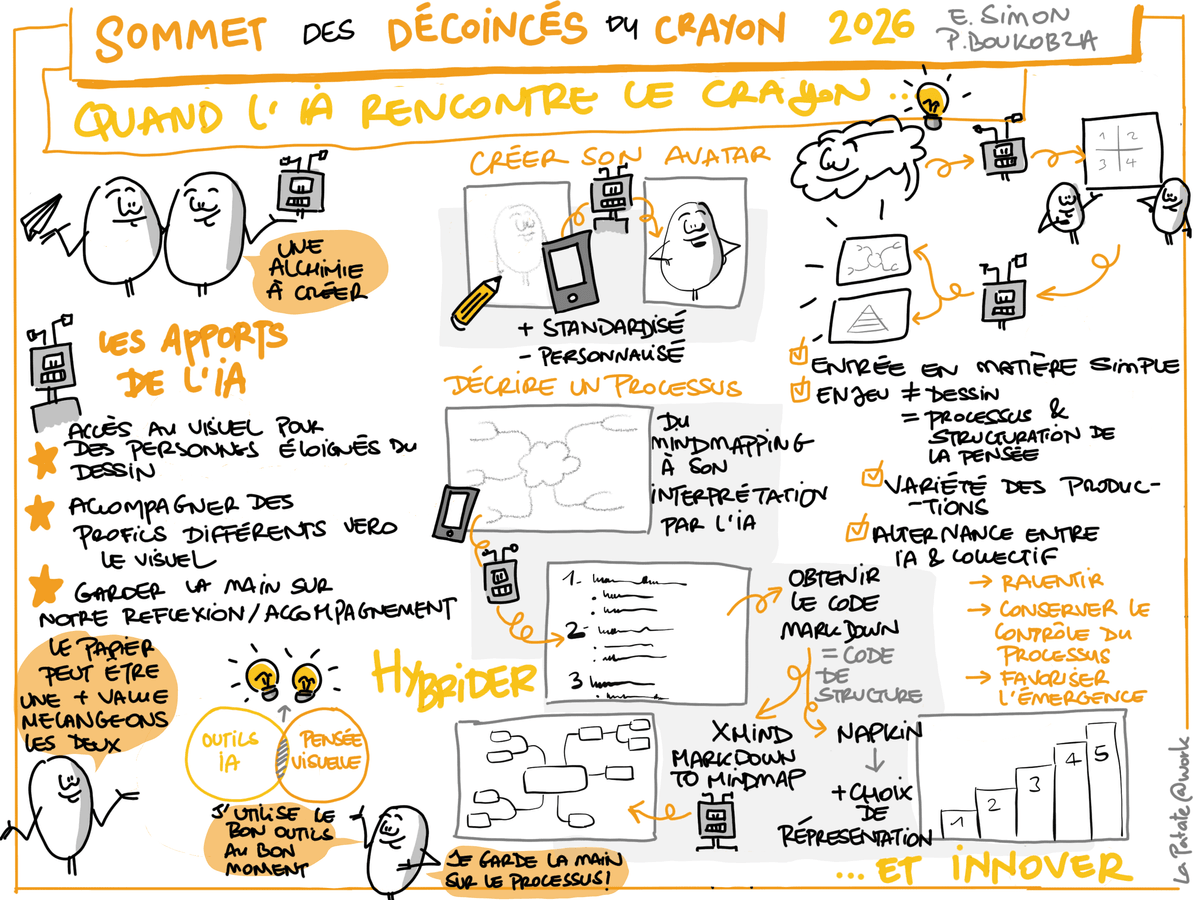 SOMMET DES DÉCOINCÉS DU CRAYON 2026
E. SIMON
P. BOUKOBZA
QUAND L'IA RENCONTRE LE CRAYON ...
UNE
ALCHIMIE
À CRÉER
LES APPORTS
DE L'IA
ACCÈS AU VISUEL POUR
DES PERSONNES ÉLOIGNÉS DU
DESSIN
ACCOMPAGNER DES
PROFILS DIFFÉRENTS VERO
LE VISUEL
GARDER LA MAIN SUR
NOTRE REFLEXION/ACCOMPAGNEMENT
LE PAPIER
PEUT ÊTRE
UNE + VALUE
MELANGEONS
LES DEUX
OUTILS
IA
PENSÉE
VISUELLE
J'UTILISE LE
BON OUTILS
AU BON
MOMENT
JE GARDE LA MAIN
SUR LE PROCESSUS!
HYBRIDER
CRÉER SON AVATAR
+ STANDARDISÉ
- PERSONNALISÉ
DÉCRIRE UN PROCESSUS
DU
MINDMAPPING
À SON
INTERPRÉTATION
PAR L'IA
1-
2-
3
OBTENIR
LE CODE
MARKDOWN
= CODE
DE
STRUCTURE
XMIND
MARKDOWN
TO MINDMAP
NAPKIN
+ CHOIX
DE
RÉPRESENTATION
1 2 3 4 5
1 2
3 4
ENTRÉE EN MATIÈRE SIMPLE
ENJEU ≠ DESSIN
= PROCESSUS &
STRUCTURATION DE
LA PENSÉE
VARIÉTÉ DES PRODUC-
-TIONS
ALTERNANCE ENTRE
IA & COLLECTIF
→ RALENTIR
→ CONSERVER LE
CONTRÔLE DU
PROCESSUS
→ FAVORISER
L'ÉMERGENCE
... ET INNOVER
La Patate@work